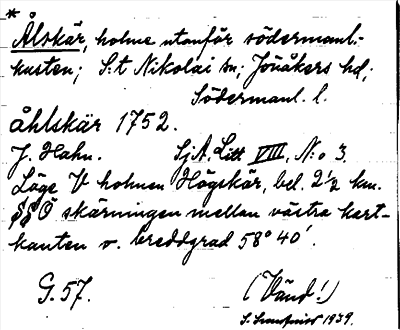 *
Ålskär, holme utanför södermanl.-
kusten; S:t Nikolai sn; Jönåkers hd;
Södermanl. l.
åhlskär 1752.
J. Hahn. SjA. Litt VIII, N:o 3.
Läge V holmen Högskär, bel. 2 1/2 km.
SSO skärningen mellan västra kart-
kanten o. breddgrad 58° 40'.
G. 57. (Vänd!)
1939.